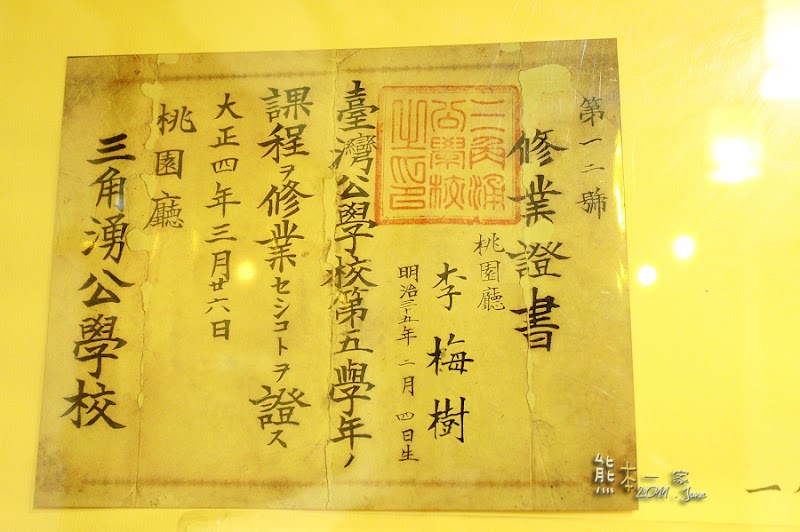 第一二號
修業證書
桃園廳
李梅樹
明治三十五年二月四日生
三角湧公學校之印
臺灣公學校第五學年ノ
課程ヲ修業セシコトヲ證ス
大正四年三月廿六日
桃園廳
三角湧公學校
熊本一家
2011. June
一